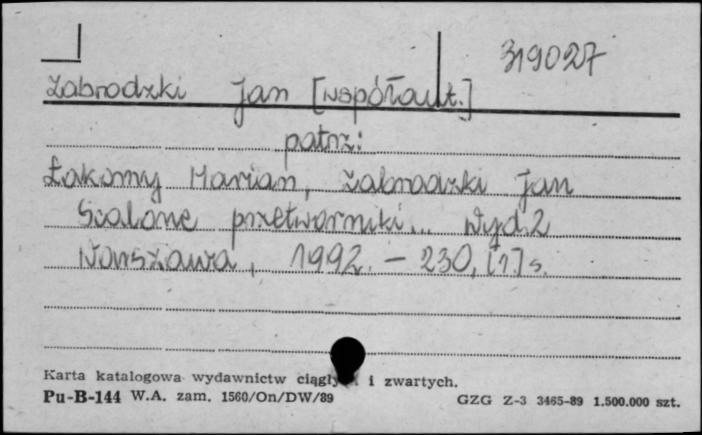 319027
Zabrodzki Jan [współaut.]
patrz:
Łakomy Marian, Zabrodzki Jan
Scalone przetworniki... Wyd. 2
Warszawa, 1992. – 230, [1] s.
Karta katalogowa wydawnictw ciągły i zwartych.
Pu-B-144 W.A. zam. 1560/On/DW/89 GZG Z-3 3465-89 1.500.000 szt.